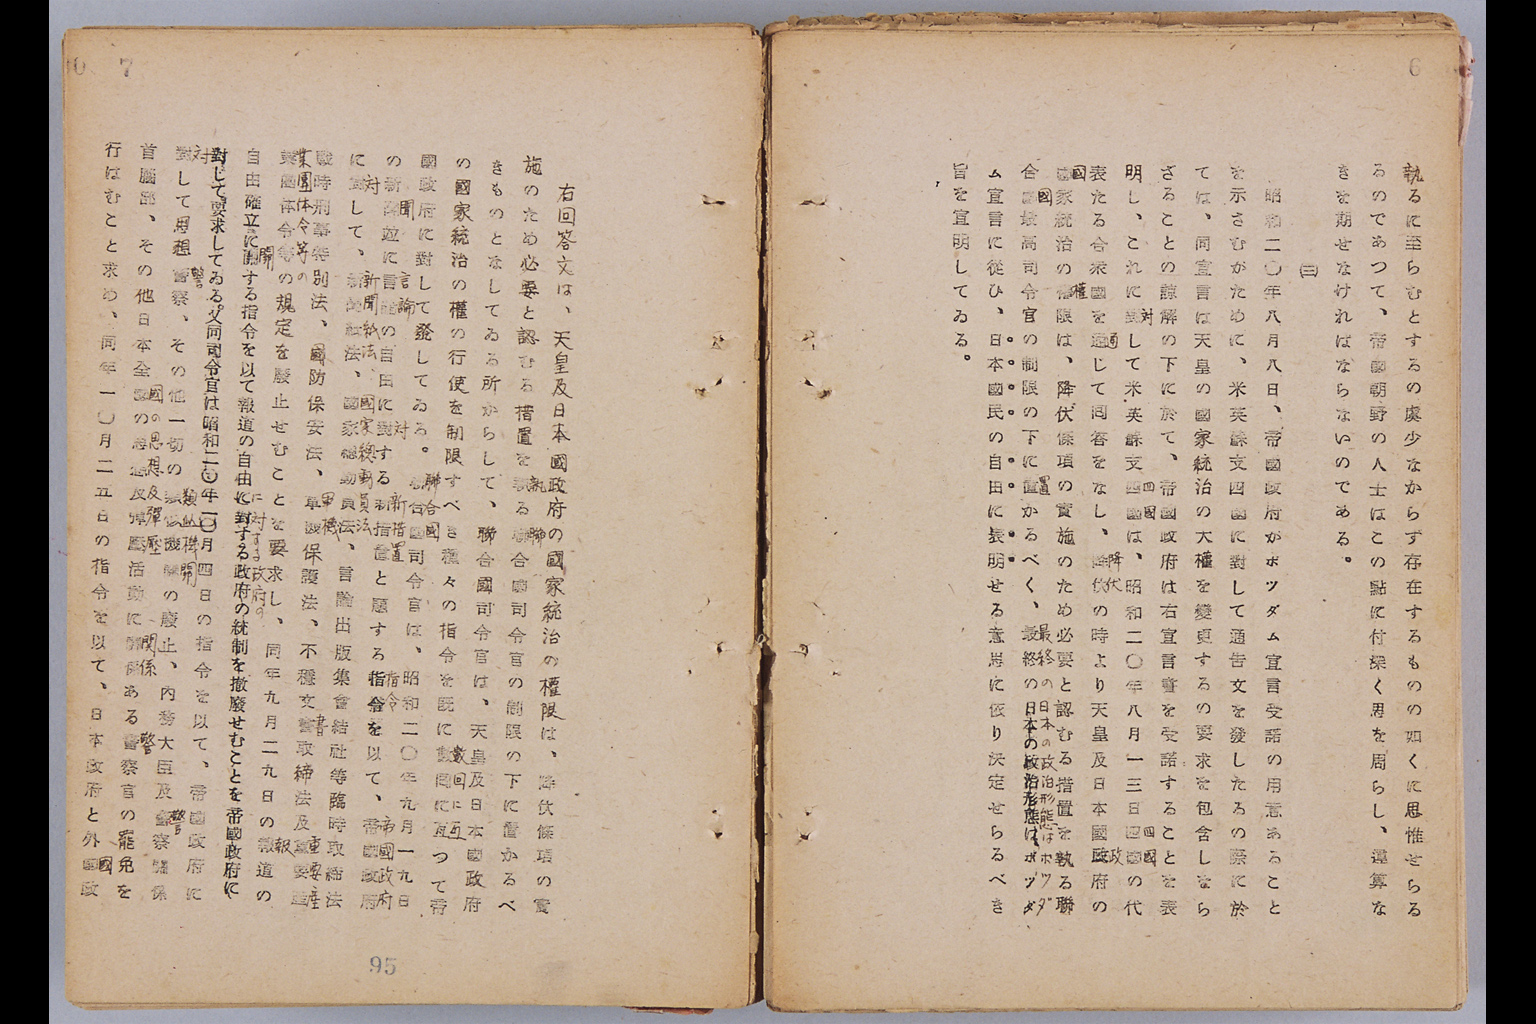 6
執るに至らむとするの虞少なからず存在するものの如くに思惟せらる
るのであつて、帝國朝野の人士はこの點に付深く思を周らし、違算な
きを期せなければならないのである。
(三)
昭和二〇年八月八日、帝國政府がポツダム宣言受諾の用意あること
を示さむがために、米英蘇支四國に對して通告文を發したるの際に於
ては、同宣言は天皇の國家統治の大權を變更するの要求を包含しなら
ざることの諒解の下に於て、帝國政府は右宣言書を受諾することを表
明し、これに対して米英蘇支四國は、昭和二〇年八月一三日四國の代
表たる合衆國を通じて回答をなし、降伏の時より天皇及日本國政府の
國家統治の權限は、降伏條項の實施のため必要と認むる措置を執る聯
合國最高司令官の制限の下に置かるべく、最終の日本の政治形態はポツダ
ム宣言に從ひ、日本國民の自由に表明せる意思に依り決定せらるべき
旨を宣明してゐる。
7
右回答文は、天皇及日本國政府の國家統治の權限は、降伏條項の實
施のため必要と認むる措置を執る聯合國司令官の制限の下に置かるべ
きものとなしてゐる所からして、聯合國司令官は、天皇及日本國政府
の國家統治の權の行使を制限すべき種々の指令を既に數回に亙つて帝
國政府に對して發してゐる。聯合國司令官は、昭和二〇年九月一九日
の新聞並に言論の自由に対する新措置と題する指令を以て、帝國政府
に対して、新聞紙法、國家総動員法、言論出版集會結社等臨時取締法
戰時刑事特別法、國防保安法、軍機保護法、不穩文書取締法及重要産
業團体令等の規定を廢止せむことを要求し、同年九月二九日の報道の
自由確立に関する指令を以て報道の自由に對する政府の統制を撤廢せむことを帝國政府に
對して要求してゐる。又同司令官は昭和二〇年一〇月四日の指令を以て、帝國政府に
対して思想警察、その他一切の類似機関の廢止、内務大臣及警察關係
首腦部、その他日本全國の思想及彈壓活動に関係ある警察官の罷免を
行はむこと求め、同年一〇月二五日の指令を以て、日本政府と外國政
95